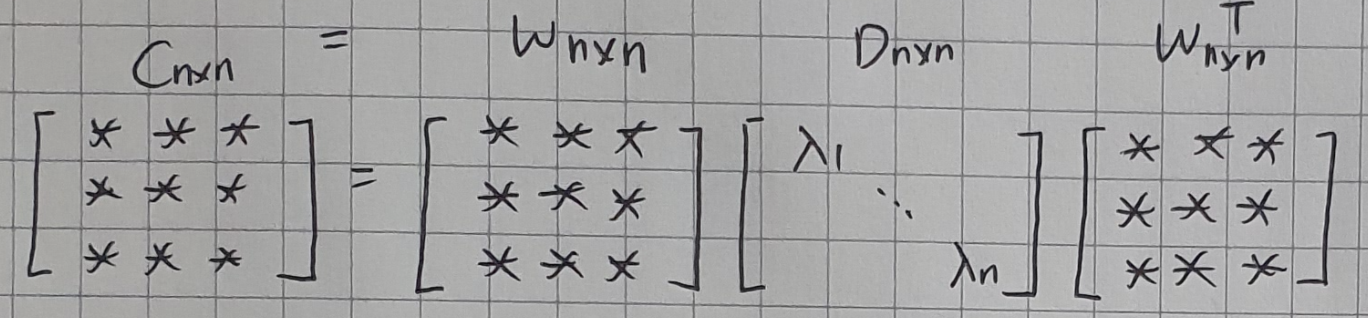 C_{n×n} = W_{n×n} D_{n×n} W^T_{n×n}
[ * * * ] = [ * * * ] [ λ1 ] [ * * * ]
[ * * * ] [ * * * ] [ ⋱ ] [ * * * ]
[ * * * ] [ * * * ] [ λn ] [ * * * ]